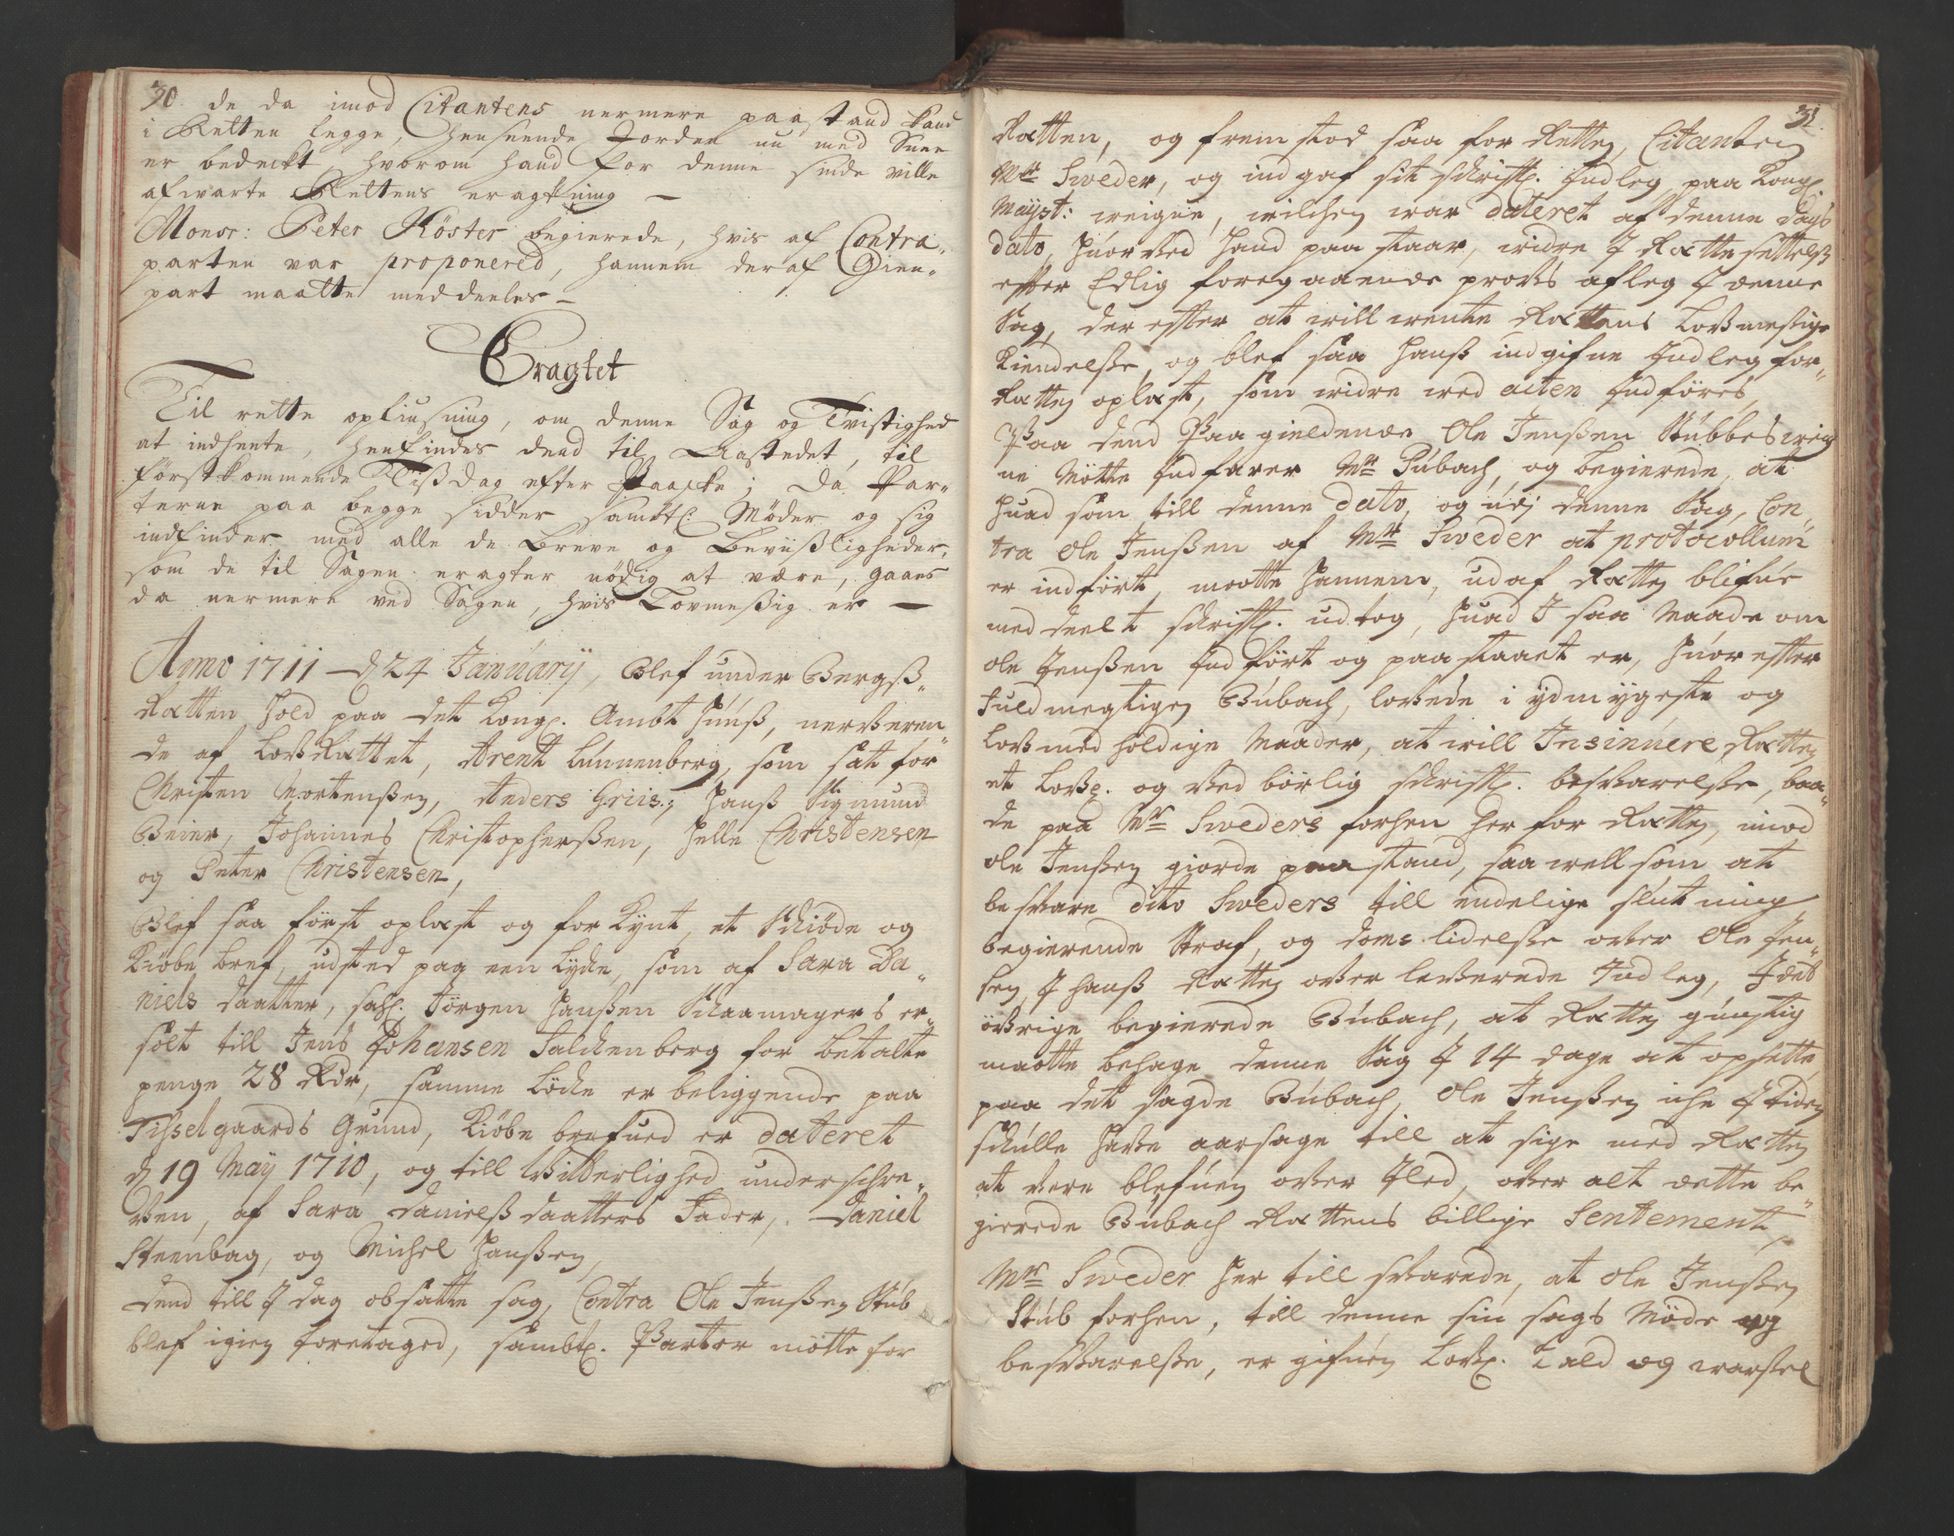 30. de da imod Citantens nermere paastand kand
i Retten legge, henseende Jorden nu med Snee
er bedeckt, hvorom hand for denne sinde ville
afwarte Rettens eragtning —
Monsr: Peter Köster begierede, hvis af Contra-
parten var proponered, hannem deraf Gien-
part maatte meddeeles —
Eragtet
Til rette oplysning, om denne Sag og Tvistighed
at indhente, henfindes dend til Aastedet, til
førstkommende Tissdag efter Paaske; da Par-
terne paa begge sidder sambtl: Møder og sig
indfinder med alle de Breve og Bevüsligheder,
som de til Sagen eragter nødig at være, gaaes
da nermere ved Sagen, hvis Lovmessig er —
Anno 1711 — d 24 Januarij, Blef under Bergss-
Rætten hold paa det Kongl. Ambt huuss, nerværen-
de af LovRættet, Arent Lünnenberg, som sat for
Christen Mortenssen, Anders Griis, Hanss Sigmund
Beier, Johannes Christopherssen, Helle Christensen
og Peter Christensen,
Blef saa først oplæst og forkynt, et Skiøde og
Kiøbe bref, udsted paa een Lycke, som af Sara Da-
niels daatter, sahl. Jørgen Hanssen Skaamagers er
solt till Jens Johansen Falckenberg for betalte
penge 28 Rdr, samme Løcke er beliggende paa
Tisselgaards Grund, Kiøbe brefued er dateret
d 19 May 1710, og till Vitterlighed underschre-
ven, af Sara Danielss daatters Fader, Daniel
Steenbag, og Michel Hanssen,
dend till I dag obsatte sag, Contra Ole Jenssen Stüb
blef igien foretaged, sambtl. Parter mötte for
31.
Rætten, og fremstod saa for Retten, Citanten
Mr Sweder, og indgaf sit skriftl. Indleg paa Kongl.
Mayst: weigne, wilcken war dateret af denne Dags
dato, huorved hand paastaar, widre I Rætte settelss
efter Edlig foregaaende prows afleg I denne
Sag, der efter at will wente Rættens Lovmessige
Kiendelsse, og blef saa hanss indgifne Indleg for
Rætten oplæst, som widre wed acten Indføres,
Paa dend Paagieldende Ole Jenssen Stübbes weig-
ne Møtte Indfarer Mr Bübach, og begierede, at
huad som till denne dato, og udj denne Sag, Con-
tra Ole Jenssen af Mr Sweder at protocollum
er indført, maatte hannem, ud af Rætten blifue
meddeelt skriftl. udtog, huad I saa Maade om
Ole Jenssen Indført og paastaaet er, huorefter
fuldmegtigen Bübach, lovede i ydmygeste og
Lovmedholdige Maader, at will Insinuere Rætten
et Lovl. og ved børlig skriftl. besvarelsse, baa-
de paa Mr Sweders forhen her for Rætten, imod
Ole Jenssen giorde paastand, saa well som at
besvare dito Sweders till endelige slutning
begierende Straf, og doms lidelsse over Ole Jen-
sen, I hanss Rætten overleverede Indleg, I det
øvrige begierede Bübach, at Rætten gunstig
maatte behage denne Sag I 14 dage at opsette,
paa det sagde Bübach, Ole Jenssen iche I tiden
skulle have aarsage till at sige med Rætten
at vere blefuen over Iled, over alt dette be-
gierede Bübach Rættens billige Sentement,
Mr Sweder her till svarede, at Ole Jenssen
Stüb forhen, till denne sin sags Møde og
besvarelsse, er gifuen Lovl. Kald og warssel